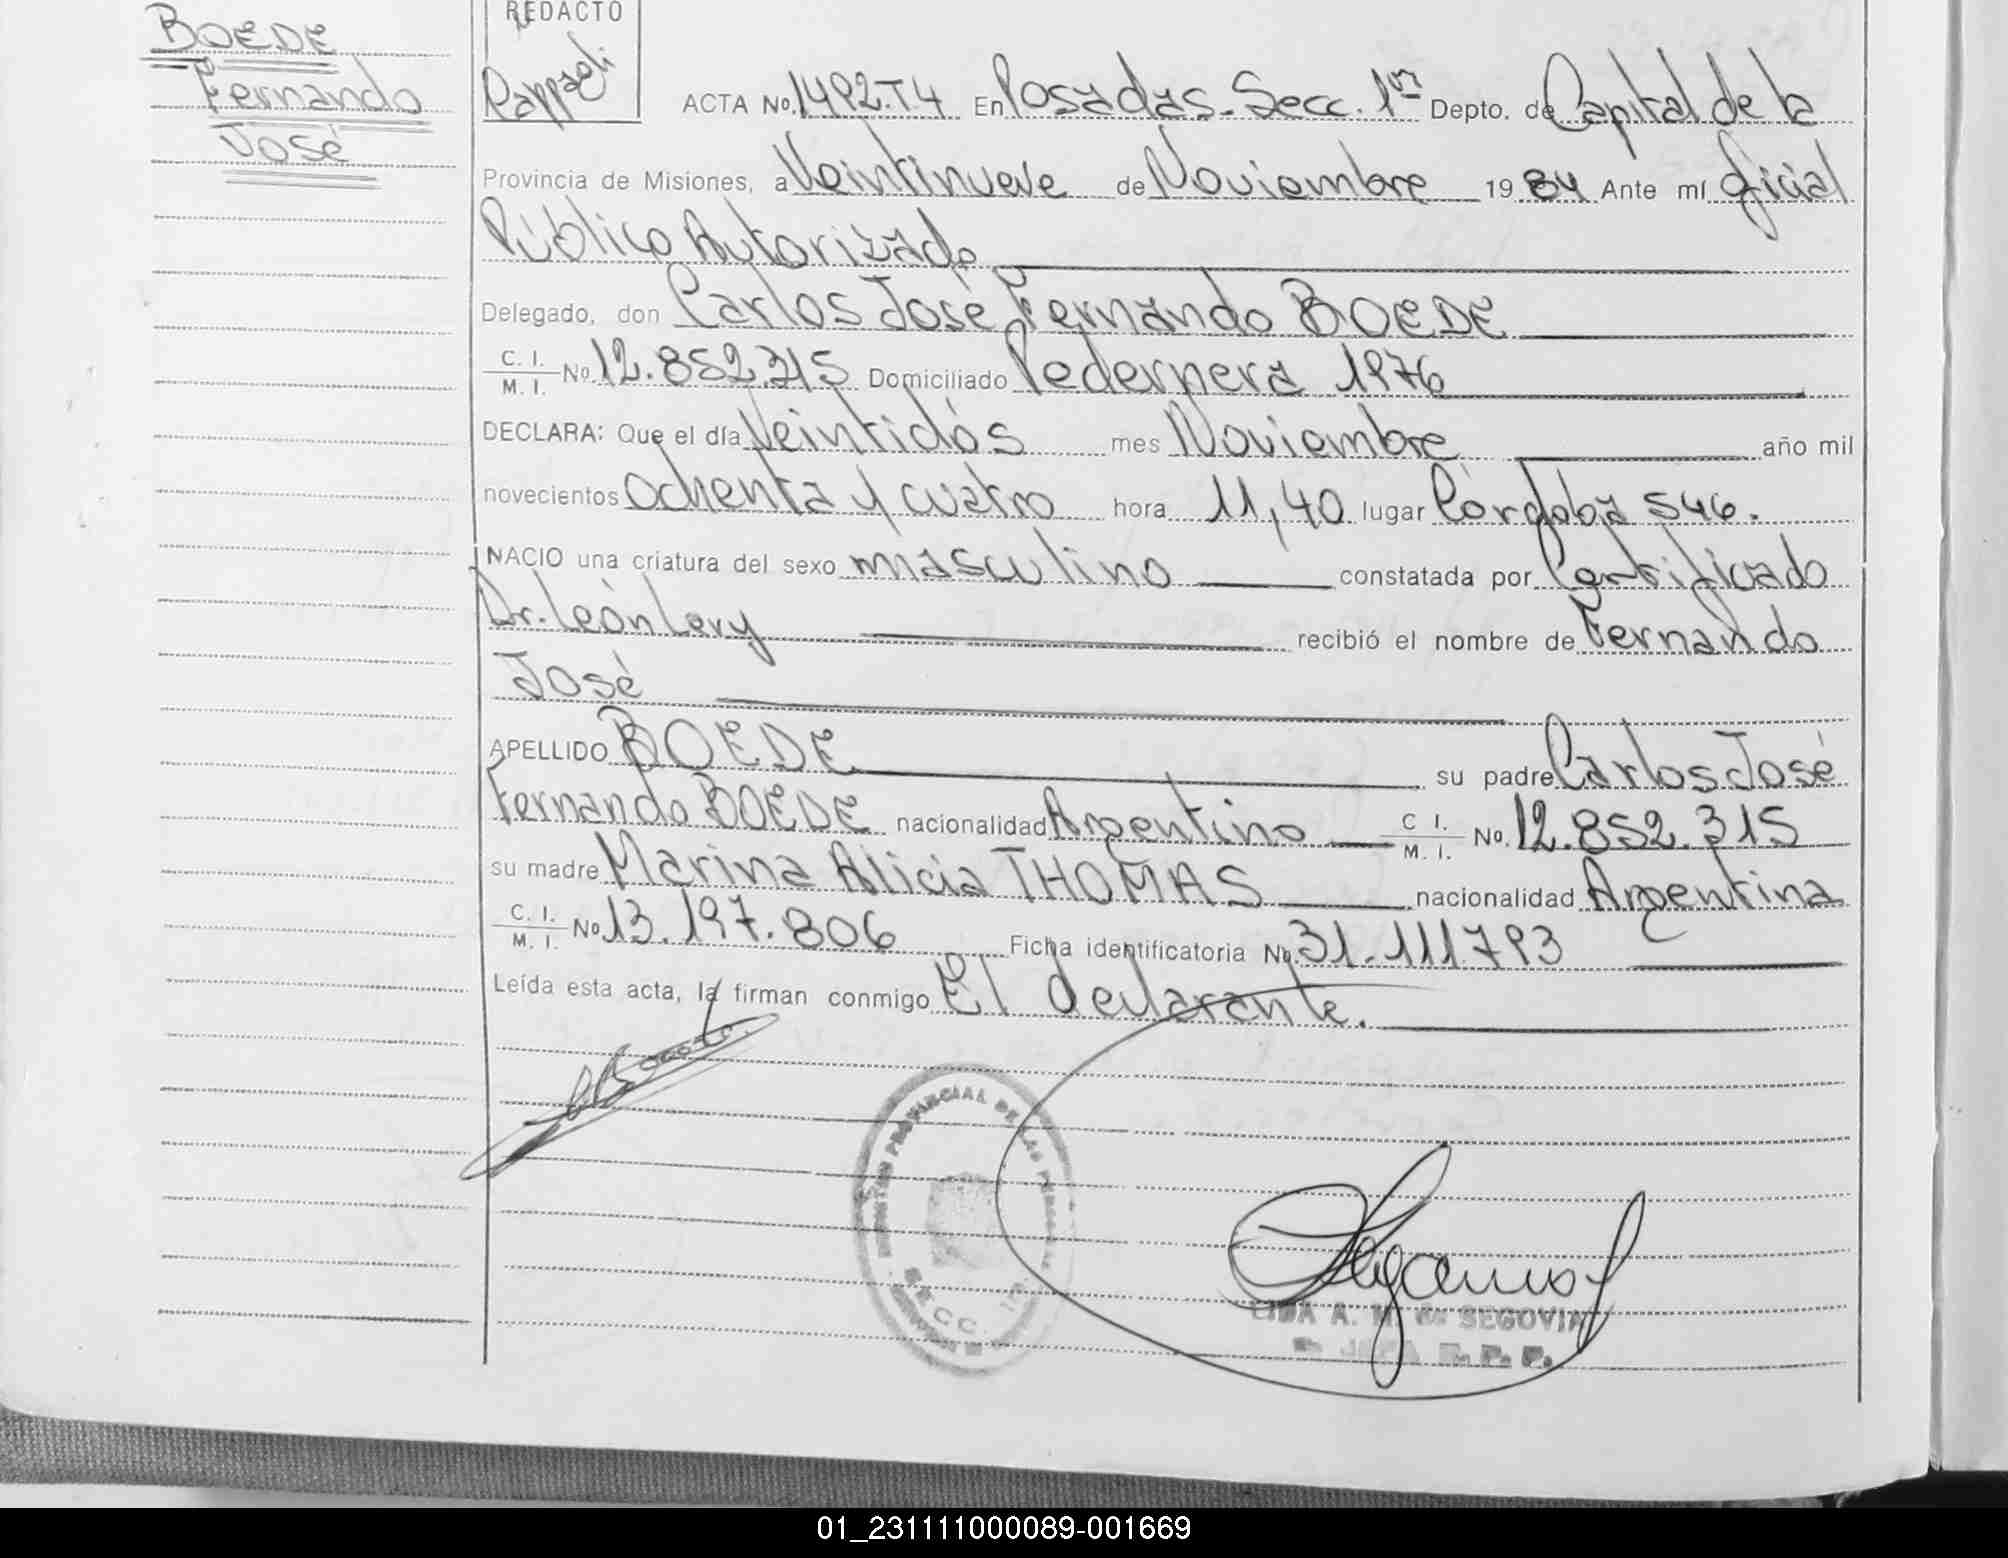 BOEDE
Fernando
José
REDACTO
Rappagli
ACTA No. 1492.T4 En Posadas-Secc. 1ra Depto. de Capital de la
Provincia de Misiones, a Veintinueve de Noviembre 1984 Ante mí Oficial
Público Autorizado
Delegado, don Carlos José Fernando BOEDE
C. I.
M. I. No. 12.852.315 Domiciliado Pedernera 1976
DECLARA: Que el día Veintidós mes Noviembre año mil
novecientos ochenta y cuatro hora 11,40 lugar Córdoba 546.
NACIO una criatura del sexo masculino constatada por Certificado
Dr. León Levy recibió el nombre de Fernando
José
APELLIDO BOEDE su padre Carlos José
Fernando BOEDE nacionalidad Argentino C I.
M. I. No. 12.852.315
su madre Marina Alicia THOMAS nacionalidad Argentina
C. I.
M. I. No 13.197.806 Ficha identificatoria No. 31.111793
Leída esta acta, la firman conmigo El declarante.
REGISTRO PROVINCIAL DE LAS PERSONAS
SECC. 1ra
LIDA A. M. de SEGOVIA
JEFA R. P. P.
01_231111000089-001669